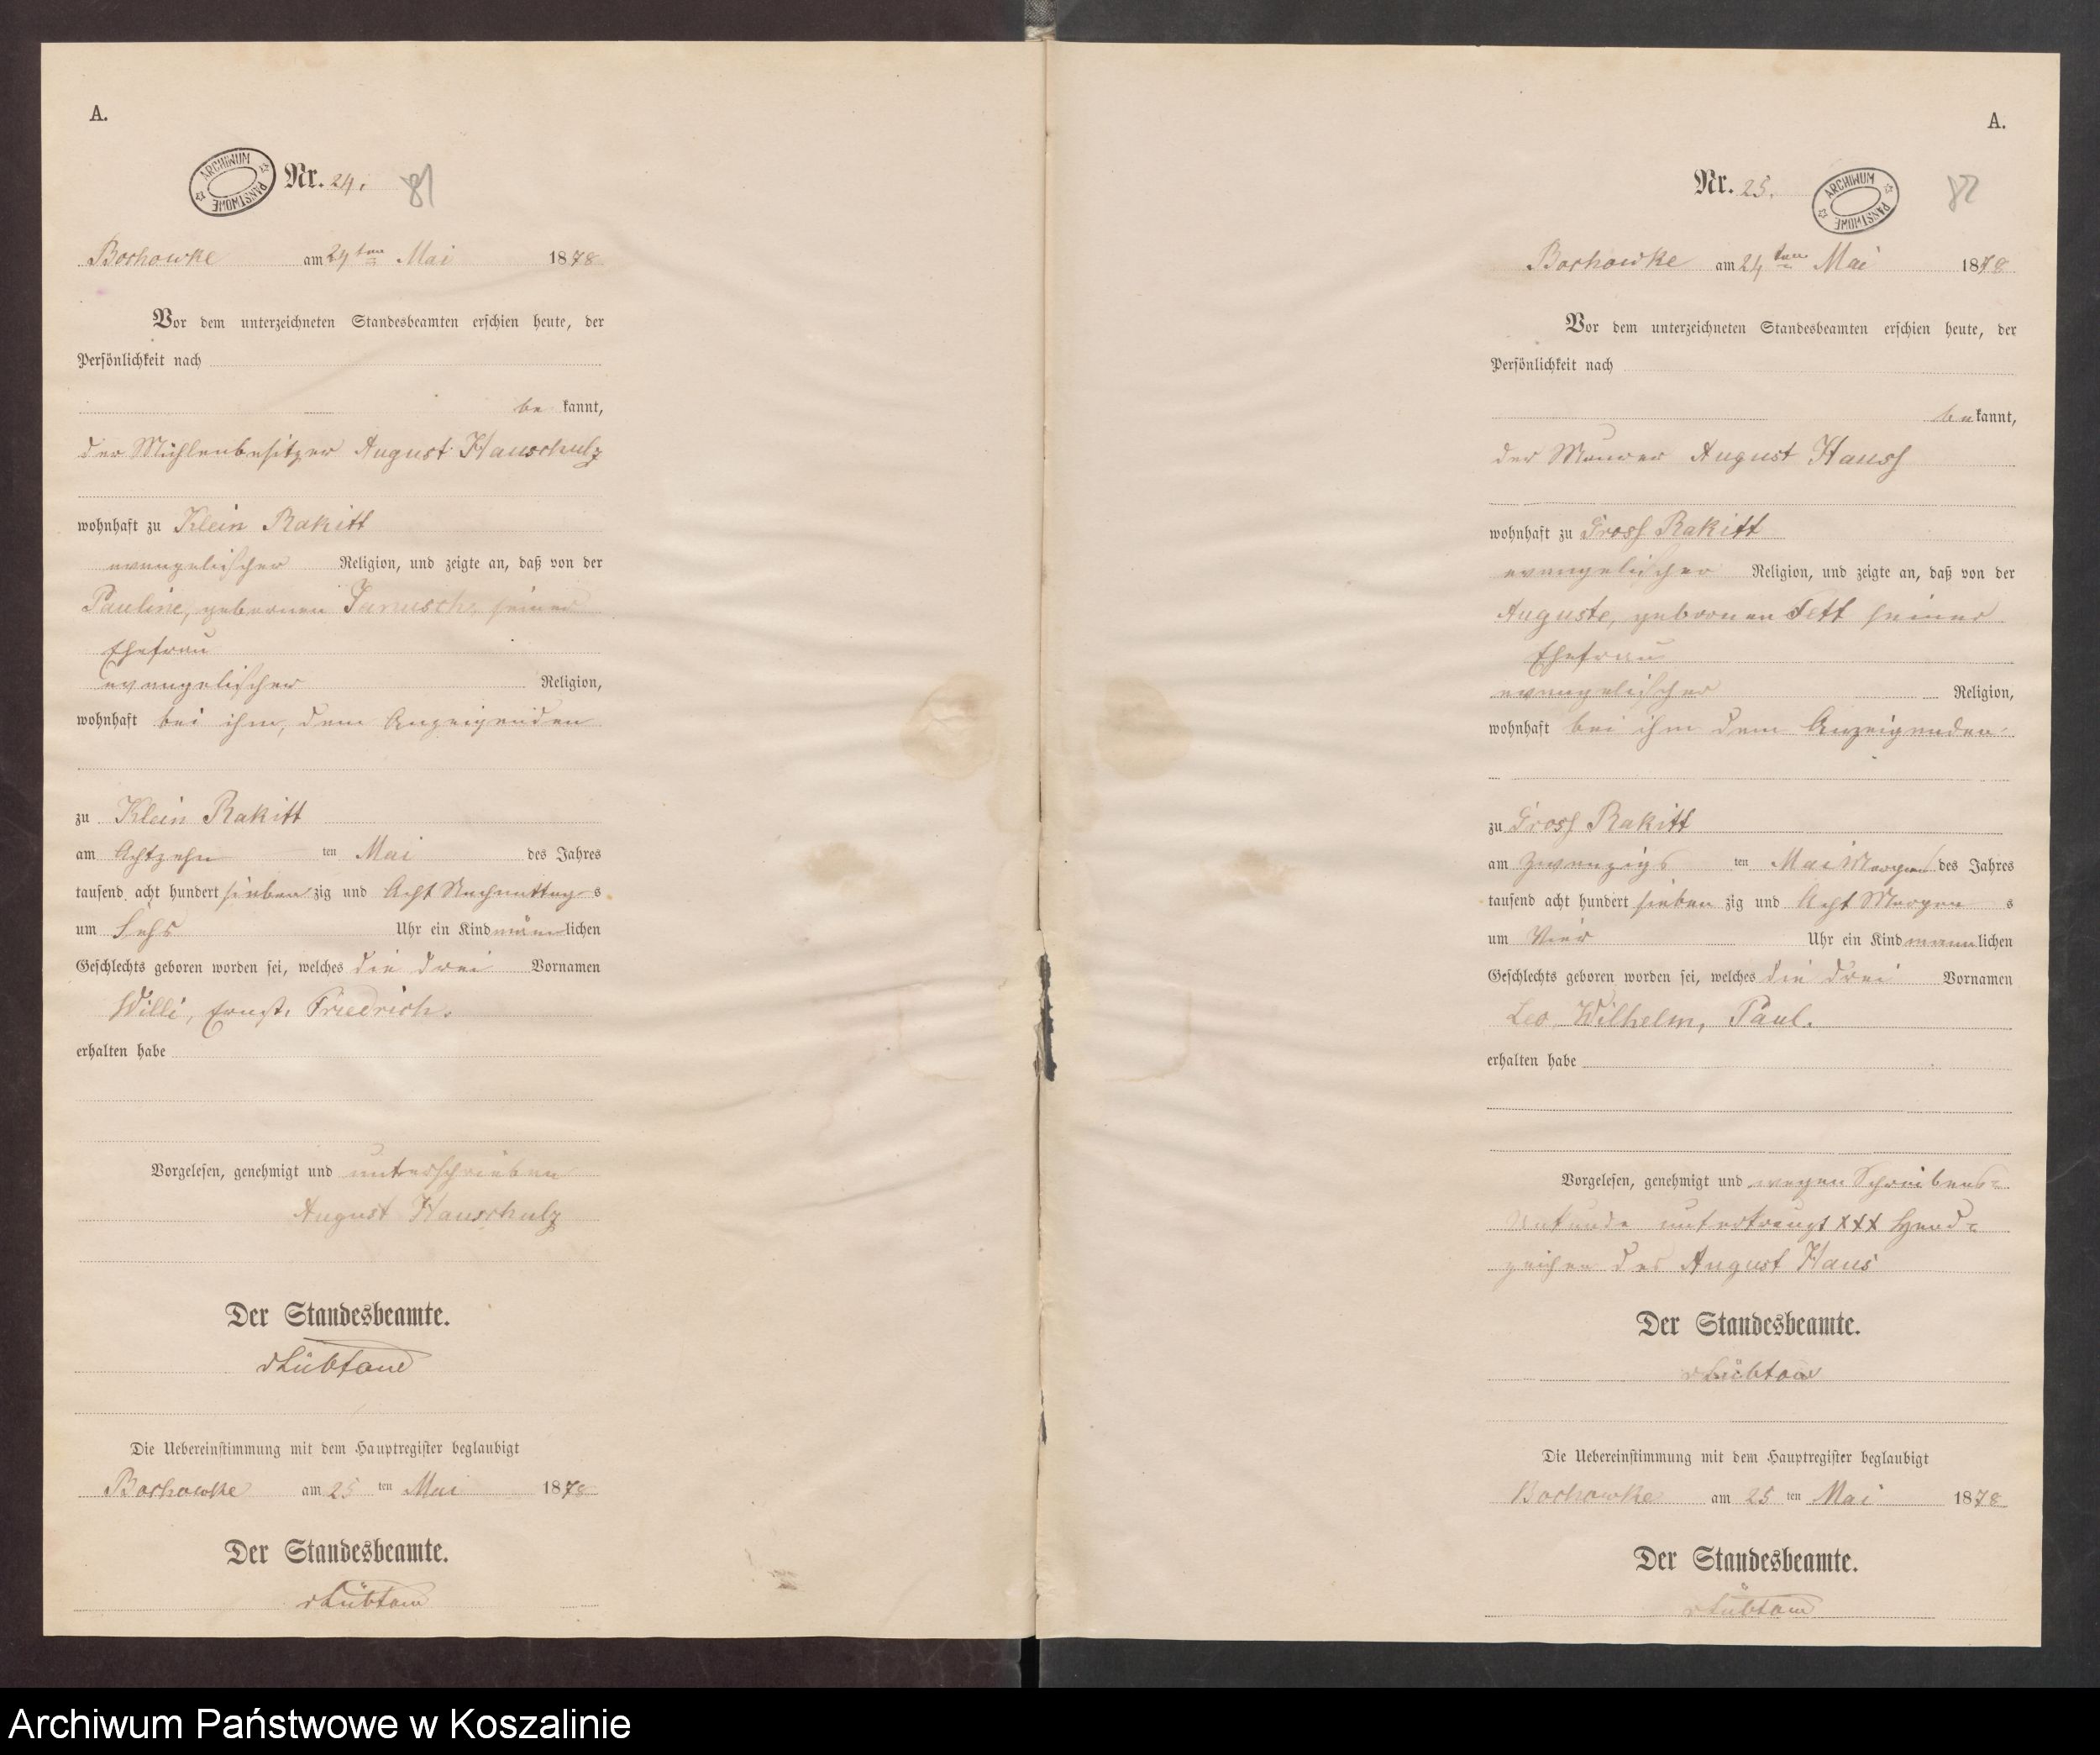 A.
ARCHIWUM PAŃSTWOWE
Nr. 24. 81
Bochowke am 24ten Mai 1878
Vor dem unterzeichneten Standesbeamten erschien heute, der
Persönlichkeit nach
be kannt,
der Mühlenbesitzer August Hauschulz
wohnhaft zu Klein Rakitt
evangelischer Religion, und zeigte an, daß von der
Pauline, gebornen Janusch seiner
Ehefrau
evangelischer Religion,
wohnhaft bei ihm, dem Anzeigenden
zu Klein Rakitt
am Achtzehn ten Mai des Jahres
tausend acht hundert sieben zig und Acht Nachmittag s
um Sehs Uhr ein Kind männ lichen
Geschlechts geboren worden sei, welches die drei Vornamen
Willi, Ernst, Friedrich.
erhalten habe
Vorgelesen, genehmigt und unterschrieben
August Hauschulz
Der Standesbeamte.
vLübtow
Die Uebereinstimmung mit dem Hauptregister beglaubigt
Bochowke am 25 ten Mai 1878
Der Standesbeamte.
vLübtow
A.
Nr. 25. 82
ARCHIWUM PAŃSTWOWE
Bochowke am 24ten Mai 1878
Vor dem unterzeichneten Standesbeamten erschien heute, der
Persönlichkeit nach
be kannt,
der Maurer August Hauss
wohnhaft zu Gross Rakitt
evangelischer Religion, und zeigte an, daß von der
Auguste, gebornen Tett seiner
Ehefrau
evangelischer Religion,
wohnhaft bei ihm dem Anzeigenden
zu Gross Rakitt
am Zwanzigs ten Mai Morgens des Jahres
tausend acht hundert sieben zig und Acht Morgen s
um Vier Uhr ein Kind männ lichen
Geschlechts geboren worden sei, welches die drei Vornamen
Leo, Wilhelm, Paul.
erhalten habe
Vorgelesen, genehmigt und wegen Schreibens=
Unkunde unterkreuzt XXX Hand=
zeichen des August Haus
Der Standesbeamte.
vLübtow
Die Uebereinstimmung mit dem Hauptregister beglaubigt
Bochowke am 25 ten Mai 1878
Der Standesbeamte.
vLübtow
Archiwum Państwowe w Koszalinie